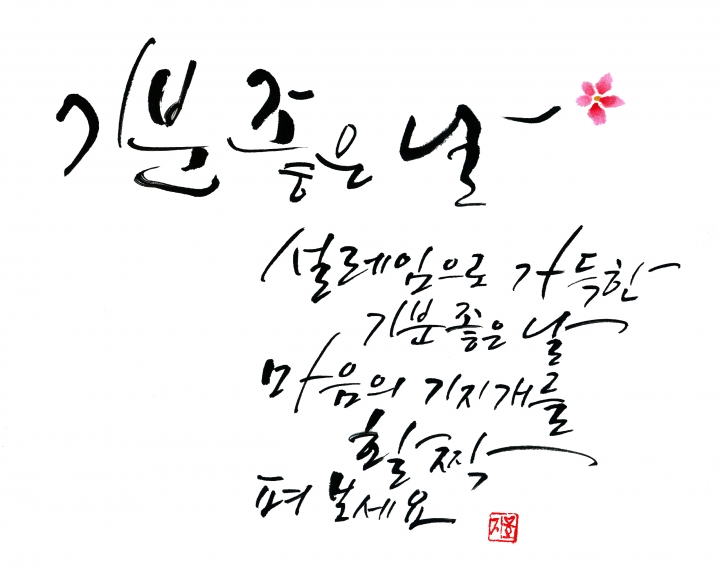 기분 좋은 날
설레임으로 가득한
기분 좋은 날
마음의 기지개를
활짝
펴 보세요